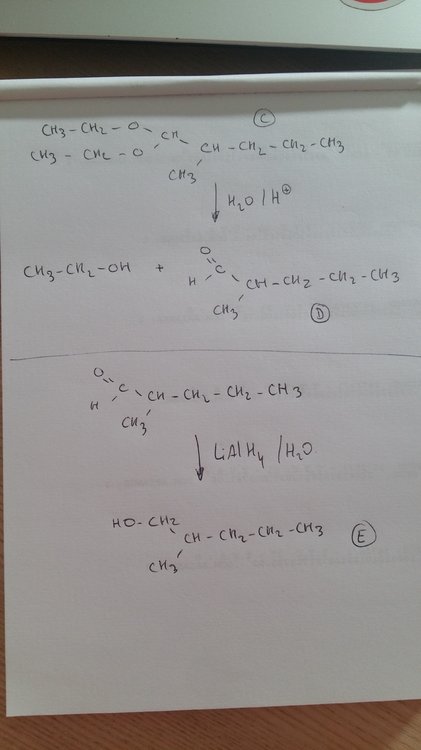 Ⓒ
CH3-CH2-O
CH
CH3-CH2-O
CH-CH2-CH2-CH3
CH3
H2O/H⊕
O
CH3-CH2-OH + H C CH-CH2-CH2-CH3
CH3
Ⓓ
O
C
H
CH-CH2-CH2-CH3
CH3
LiAlH4/H2O
HO-CH2
CH-CH2-CH2-CH3
Ⓔ
CH3